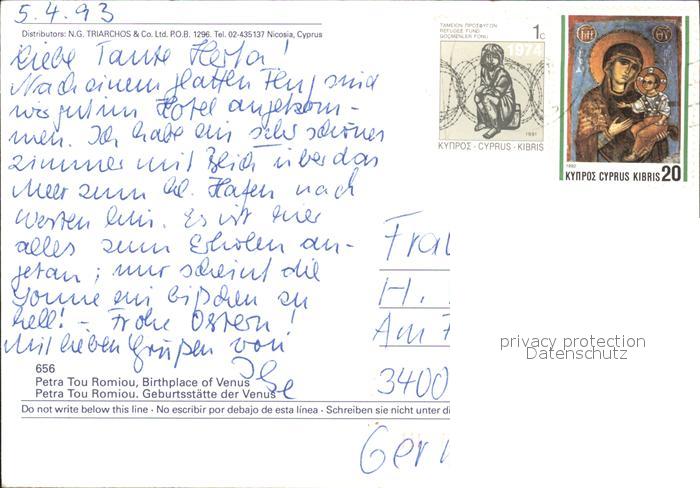 5.4.93
Distributors: N.G. TRIARCHOS & Co. Ltd. P.O.B. 1296. Tel. 02-435137 Nicosia, Cyprus
Liebe Tante Herta!
Nach einem glatten Flug sind
wir gut im Hotel angekom-
men. Ich habe ein sehr schönes
Zimmer mit Blick über das
Meer zum kl. Hafen nach
Westen hin. Es ist hier
alles zum Erholen an-
getan; nur scheint die
Sonne ein bißchen zu
hell! - Frohe Ostern!
Mit lieben Grüßen von
Ilse
656
Petra Tou Romiou, Birthplace of Venus
Petra Tou Romiou. Geburtsstätte der Venus
Do not write below this line · No escribir por debajo de esta línea · Schreiben sie nicht unter di
ΤΑΜΕΙΟΝ ΠΡΟΣΦΥΓΩΝ
REFUGEE FUND
GÖÇMENLER FONU
1c
1974
1991
ΚΥΠΡΟΣ · CYPRUS · KIBRIS
1992
ΚΥΠΡΟΣ CYPRUS KIBRIS 20
Frau
H.
Am
3400
Ger
privacy protection
Datenschutz